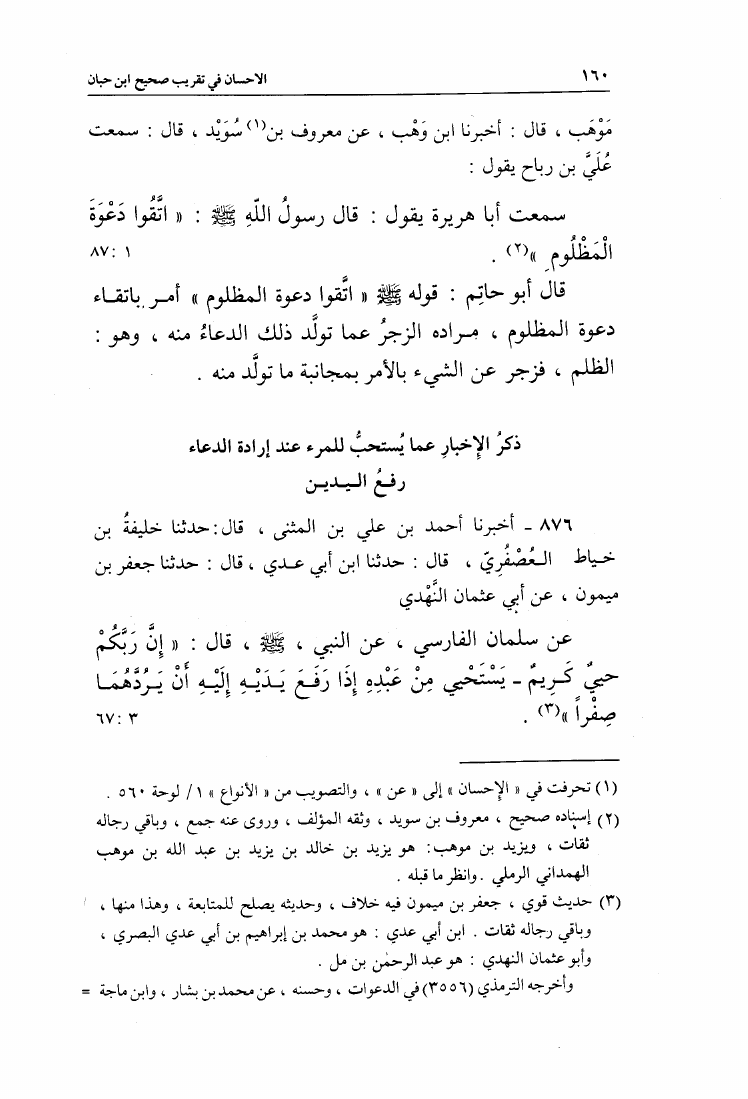 ١٦٠ الاحسان في تقريب صحيح ابن حبان
مَوْهَب ، قال : أخبرنا ابن وَهْب ، عن معروف بن(١) سُوَيْد ، قال : سمعت
عُلَيَّ بن رباح يقول :
سمعت أبا هريرة يقول : قال رسولُ اللّهِ ﷺ : « اتَّقُوا دَعْوَةَ
الْمَظْلُومِ »(٢) . ١ :٨٧
قال أبو حاتِم : قوله ﷺ « اتَّقوا دعوة المظلوم » أمر باتقاء
دعوة المظلوم ، مراده الزجرُ عما تولَّد ذلك الدعاءُ منه ، وهو :
الظلم ، فزجر عن الشيء بالأمر بمجانبة ما تولَّد منه .
ذكرُ الإِخبارِ عما يُستحبُّ للمرء عند إرادة الدعاء
رفعُ اليدين
٨٧٦ ـ أخبرنا أحمد بن علي بن المثنى ، قال : حدثنا خليفةُ بن
خياط العُصْفُرِيّ ، قال : حدثنا ابن أبي عدي ، قال : حدثنا جعفر بن
ميمون ، عن أبي عثمان النَّهْدي
عن سلمان الفارسي ، عن النبي ، ﷺ ، قال : « إِنَّ رَبَّكُمْ
حييٌ كَرِيمٌ ـ يَسْتَحْيِي مِنْ عَبْدِهِ إِذَا رَفَعَ يَدَيْهِ إِلَيْهِ أَنْ يَرُدَّهُمَا
صِفْراً »(٣) . ٣ :٦٧
(١) تحرفت في « الإحسان » إلى « عن » ، والتصويب من « الأنواع » ١/ لوحة ٥٦٠ .
(٢) إسناده صحيح ، معروف بن سويد ، وثقه المؤلف ، وروى عنه جمع ، وباقي رجاله
ثقات ، ويزيد بن موهب : هو يزيد بن خالد بن يزيد بن عبد الله بن موهب
الهمداني الرملي . وانظر ما قبله .
(٣) حديث قوي ، جعفر بن ميمون فيه خلاف ، وحديثه يصلح للمتابعة ، وهذا منها ،
وباقي رجاله ثقات . ابن أبي عدي : هو محمد بن إبراهيم بن أبي عدي البصري ،
وأبو عثمان النهدي : هو عبد الرحمٰن بن مل .
وأخرجه الترمذي (٣٥٥٦) في الدعوات ، وحسنه ، عن محمد بن بشار ، وابن ماجة =